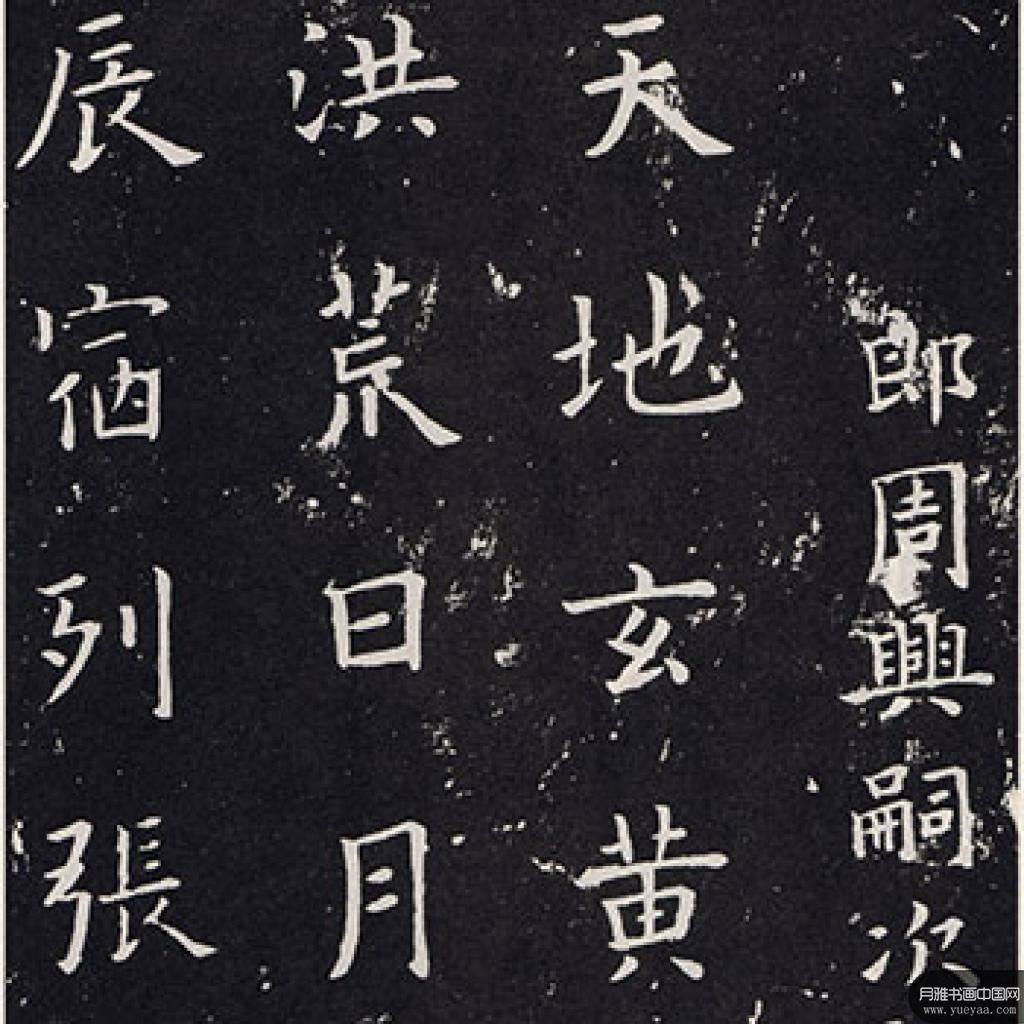 郎周興嗣次
天地玄黃
洪荒日月
辰宿列張
月雅书画中国网
www.yueyaa.com